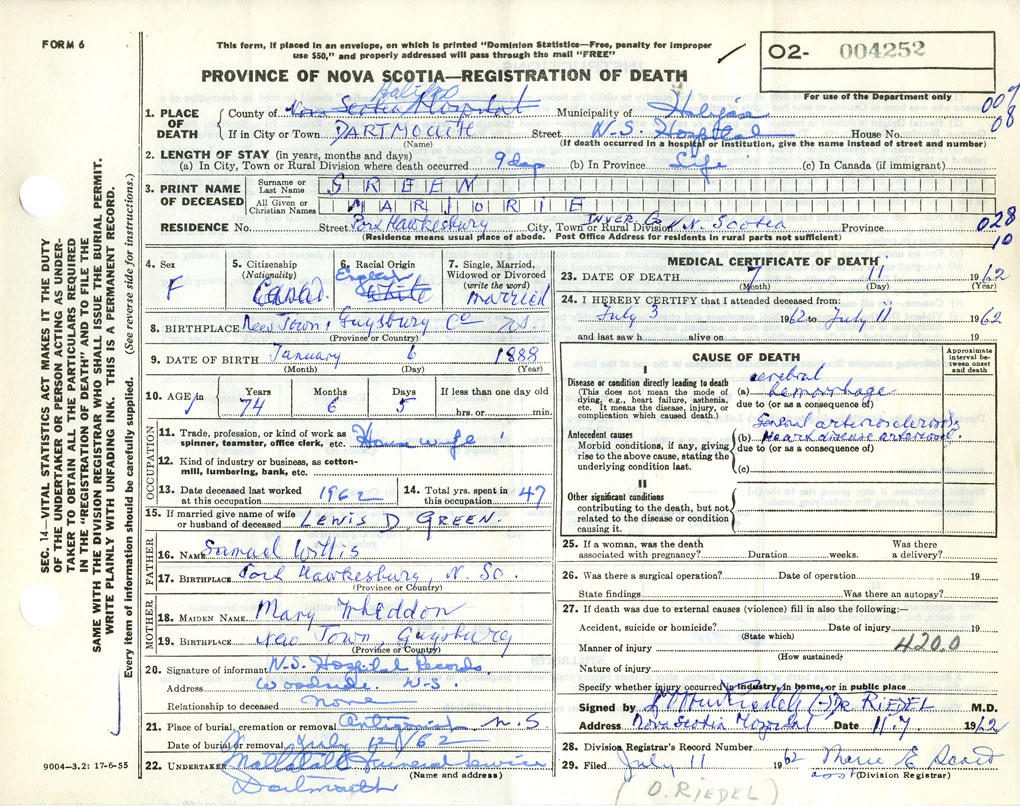 FORM 6
This form, if placed in an envelope, on which is printed "Dominion Statistics—Free, penalty for improper
use $50," and properly addressed will pass through the mail "FREE"
O2- 004252
PROVINCE OF NOVA SCOTIA—REGISTRATION OF DEATH
For use of the Department only
009
08
Halifax
1. PLACE OF DEATH County of Nova Scotia Hospital Municipality of Halifax
If in City or Town DARTMOUTH Street N.S. Hospital House No.
(Name) (If death occurred in a hospital or institution, give the name instead of street and number)
2. LENGTH OF STAY (in years, months and days)
(a) In City, Town or Rural Division where death occurred 9 days (b) In Province Life (c) In Canada (if immigrant)
3. PRINT NAME OF DECEASED Surname or Last Name GREEN
All Given or Christian Names MARJORIE
RESIDENCE No. Street Port Hawkesbury City, Town or Rural Division Inver. Co N. Scotia Province 028
(Residence means usual place of abode. Post Office Address for residents in rural parts not sufficient) 10
4. Sex F
5. Citizenship (Nationality) Canad.
6. Racial Origin English White
7. Single, Married, Widowed or Divorced (write the word) married
8. BIRTHPLACE New Town, Guysbury Co N.S.
(Province or Country)
9. DATE OF BIRTH January 6 1888
(Month) (Day) (Year)
10. AGE in Years 74 Months 6 Days 5 If less than one day old hrs. or min.
OCCUPATION
11. Trade, profession, or kind of work as spinner, teamster, office clerk, etc. House wife
12. Kind of industry or business, as cotton-mill, lumbering, bank, etc.
13. Date deceased last worked at this occupation 1962 14. Total yrs. spent in this occupation 47
15. If married give name of wife or husband of deceased LEWIS D GREEN.
FATHER
16. NAME Samuel Willis
17. BIRTHPLACE Port Hawkesbury, N. Sc.
(Province or Country)
MOTHER
18. MAIDEN NAME Mary Wheddon
19. BIRTHPLACE New Town, Guysburg
(Province or Country)
20. Signature of informant N.S. Hospital Records
Address Woodside N-S.
Relationship to deceased none
21. Place of burial, cremation or removal N.S
Date of burial or removal July 12/62
22. UNDERTAKER Mattatall Funeral Service
(Name and address)
Dartmouth
MEDICAL CERTIFICATE OF DEATH
23. DATE OF DEATH 7 11 1962
(Month) (Day) (Year)
24. I HEREBY CERTIFY that I attended deceased from:
July 3 1962 to July 11 1962
and last saw h alive on 19
CAUSE OF DEATH
Approximate interval between onset and death
I
Disease or condition directly leading to death
(This does not mean the mode of dying, e.g., heart failure, asthenia, etc. It means the disease, injury, or complication which caused death.)
(a) cerebral hemorrhage
due to (or as a consequence of)
Antecedent causes
Morbid conditions, if any, giving rise to the above cause, stating the underlying condition last.
(b) General arteriosclerosis
Heart disease
due to (or as a consequence of)
(c)
II
Other significant conditions contributing to the death, but not related to the disease or condition causing it.
25. If a woman, was the death associated with pregnancy? Duration weeks. Was there a delivery?
26. Was there a surgical operation? Date of operation 19
State findings Was there an autopsy?
27. If death was due to external causes (violence) fill in also the following:—
Accident, suicide or homicide? Date of injury 19
(State which)
Manner of injury 420.0
(How sustained)
Nature of injury
Specify whether injury occurred in industry, in home, or in public place
Signed by DR. RIEDEL M.D.
Address Nova Scotia Hospital Date 11.7 1962
28. Division Registrar's Record Number
29. Filed July 11 1962 Marie E
asst (Division Registrar)
(O. RIEDEL)
9004—3.2: 17-6-55
SEC. 14—VITAL STATISTICS ACT MAKES IT THE DUTY
OF THE UNDERTAKER OR PERSON ACTING AS UNDER-
TAKER TO OBTAIN ALL THE PARTICULARS REQUIRED
IN THE "REGISTRATION OF DEATH" AND TO FILE THE
SAME WITH THE DIVISION REGISTRAR WHO SHALL ISSUE THE BURIAL PERMIT.
WRITE PLAINLY WITH UNFADING INK. THIS IS A PERMANENT RECORD.
Every item of information should be carefully supplied. (See reverse side for instructions.)